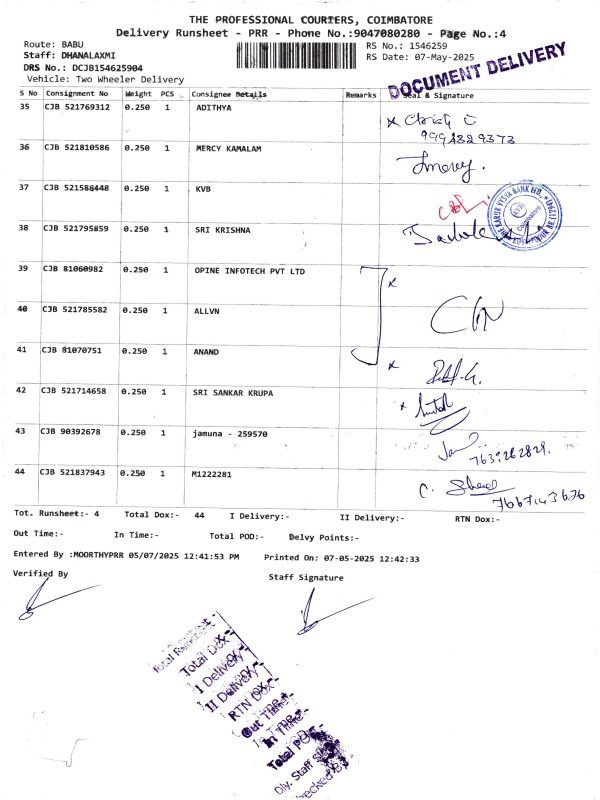 THE PROFESSIONAL COURIERS, COIMBATORE
Delivery Runsheet - PRR - Phone No.:9047080280 - Page No.:4
Route: BABU
RS No.: 1546259
Staff: DHANALAXMI
RS Date: 07-May-2025
DRS No.: DCJB154625904
Vehicle: Two Wheeler Delivery
DOCUMENT DELIVERY
S No Consignment No Weight PCS Consignee Details Remarks Seal & Signature
35 CJB 521769312 0.250 1 ADITHYA
36 CJB 521810586 0.250 1 MERCY KAMALAM
37 CJB 521588448 0.250 1 KVB
38 CJB 521795859 0.250 1 SRI KRISHNA
39 CJB 81060982 0.250 1 OPINE INFOTECH PVT LTD
40 CJB 521785582 0.250 1 ALLVN
41 CJB 81070751 0.250 1 ANAND
42 CJB 521714658 0.250 1 SRI SANKAR KRUPA
43 CJB 90392678 0.250 1 jamuna - 259570
7639262829.
44 CJB 521837943 0.250 1 M1222281
Tot. Runsheet:- 4 Total Dox:- 44 I Delivery:- II Delivery:- RTN Dox:-
Out Time:- In Time:- Total POD:- Delvy Points:-
Entered By :MOORTHYPRR 05/07/2025 12:41:53 PM Printed On: 07-05-2025 12:42:33
Verified By
Staff Signature
Total Runsheet:-
Total Dox:-
I Delivery:-
II Delivery:-
RTN Dox:-
Out Time:-
In Time:-
Total POD:-
Dly. Staff